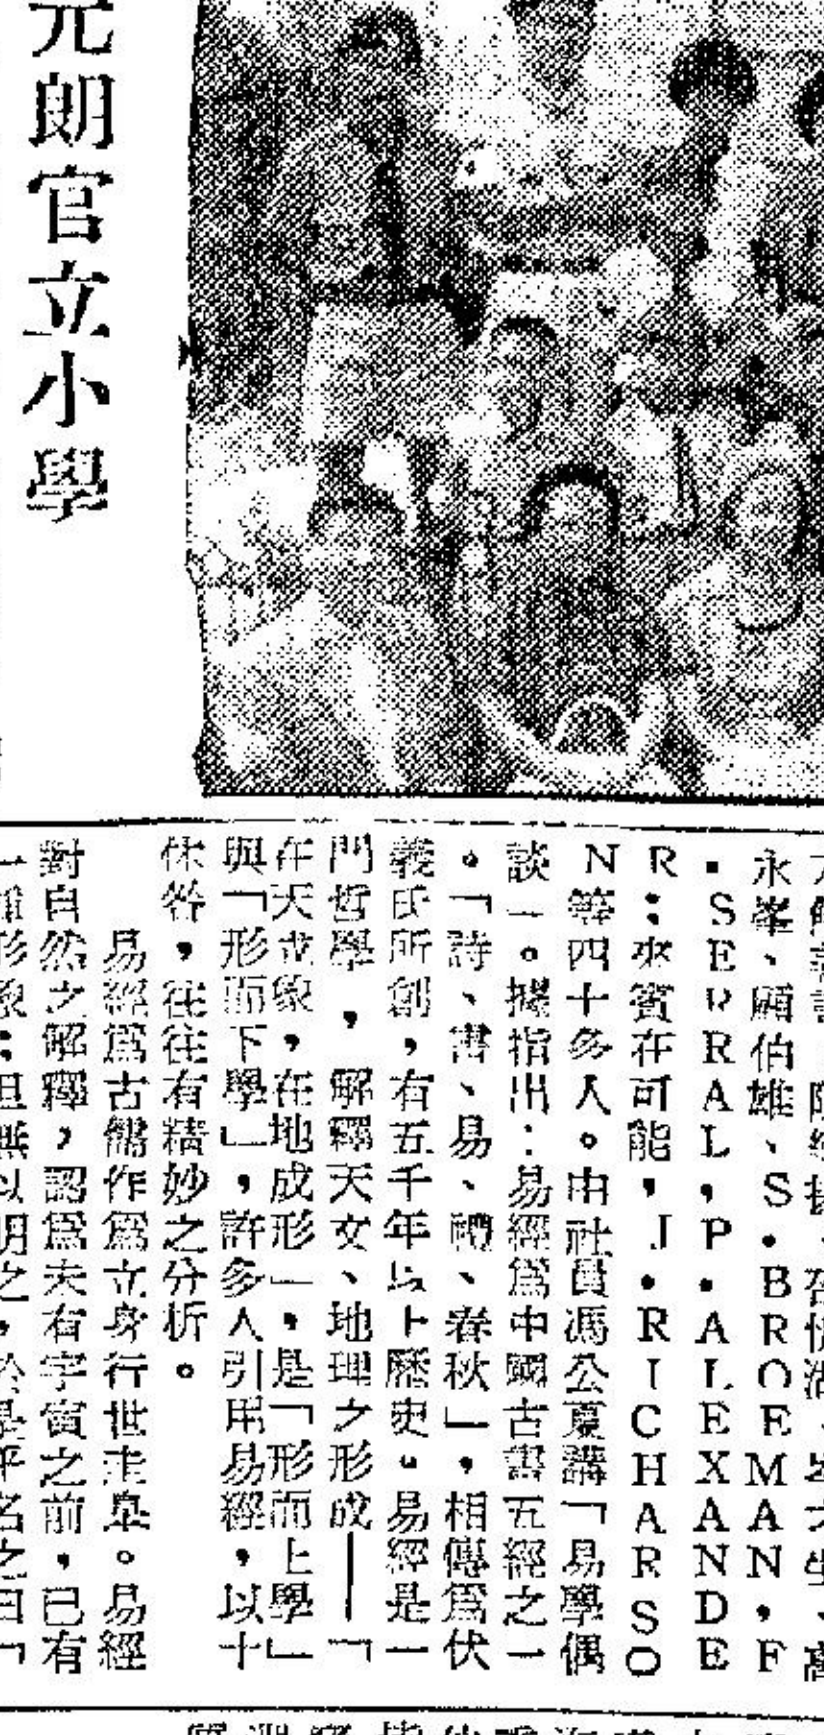 元朗官立小學
永峯、顧伯雄、S．BROEMAN，F
．SERRAL，P．ALEXANDE
R：來賓在可能，J．RICHARSO
N等四十多人。由社員馮公夏講「易學偶
談」。據指出：易經爲中國古書五經之一
。「詩、書、易、禮、春秋」，相傳爲伏
義氏所創，有五千年以上歷史。易經是一
門哲學，解釋天文、地理之形成——「
在天成象，在地成形」，是「形而上學」
與「形而下學」，許多人引用易經，以卜
休咎，往往有精妙之分析。
易經爲古儒作爲立身行世圭臬。易經
對自然之解釋，認爲未有宇宙之前，已有
一種形象；但無以明之，於是乎名之曰「